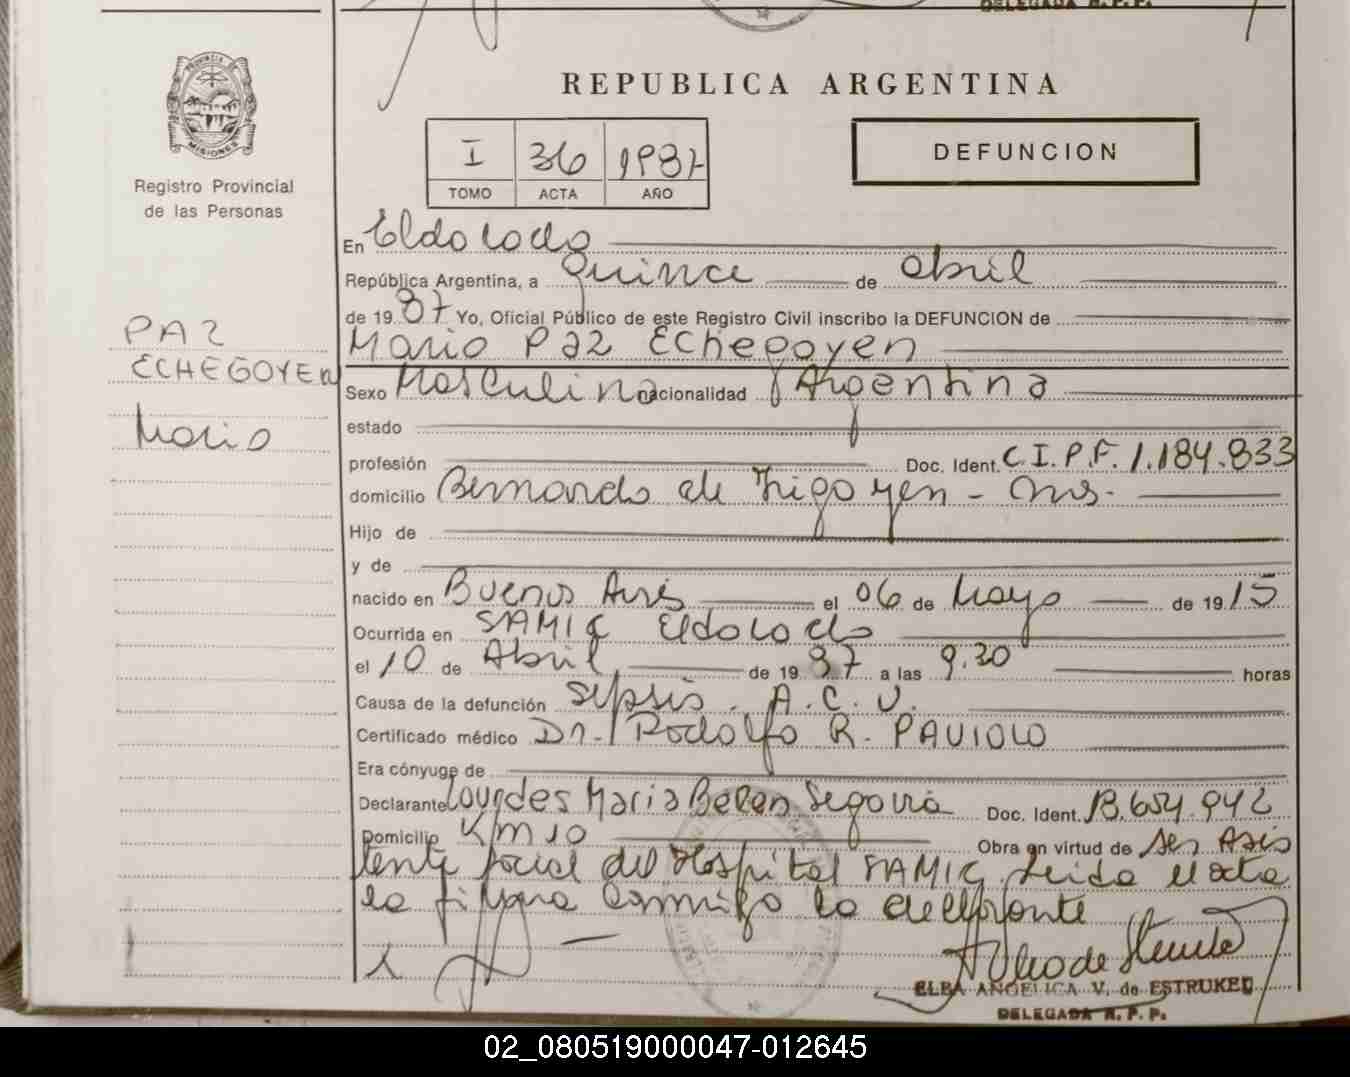 DELEGADA R.P.P.
PROVINCIA DE
MISIONES
Registro Provincial
de las Personas
REPUBLICA ARGENTINA
I 36 1987
TOMO ACTA AÑO
DEFUNCION
En Eldorado
República Argentina, a quince de abril
de 1987 Yo, Oficial Público de este Registro Civil inscribo la DEFUNCION de
Mario Paz Echegoyen
PAZ
ECHEGOYEN
Mario
Sexo Masculino nacionalidad Argentina
estado
profesión Doc. Ident. C.I.P.F. 1.184.833
domicilio Bernardo de Irigoyen - Mns.
Hijo de
y de
nacido en Buenos Aires el 06 de Mayo de 1915
Ocurrida en SAMIC Eldorado
el 10 de Abril de 1987 a las 9.30 horas
Causa de la defunción Sepsis. A.C.V.
Certificado médico Dr. Rodolfo R. PAVIOLO
Era cónyuge de
Declarante Lourdes Maria Belen Segovia Doc. Ident. 13.654.942
Domicilio Km 10 Obra en virtud de ser Asis
tente social del Hospital SAMIC. Leida el acta
la firma conmigo la declarante
ELBA ANGELICA V. de ESTRUKEL
DELEGADA R.P.P.
02_080519000047-012645